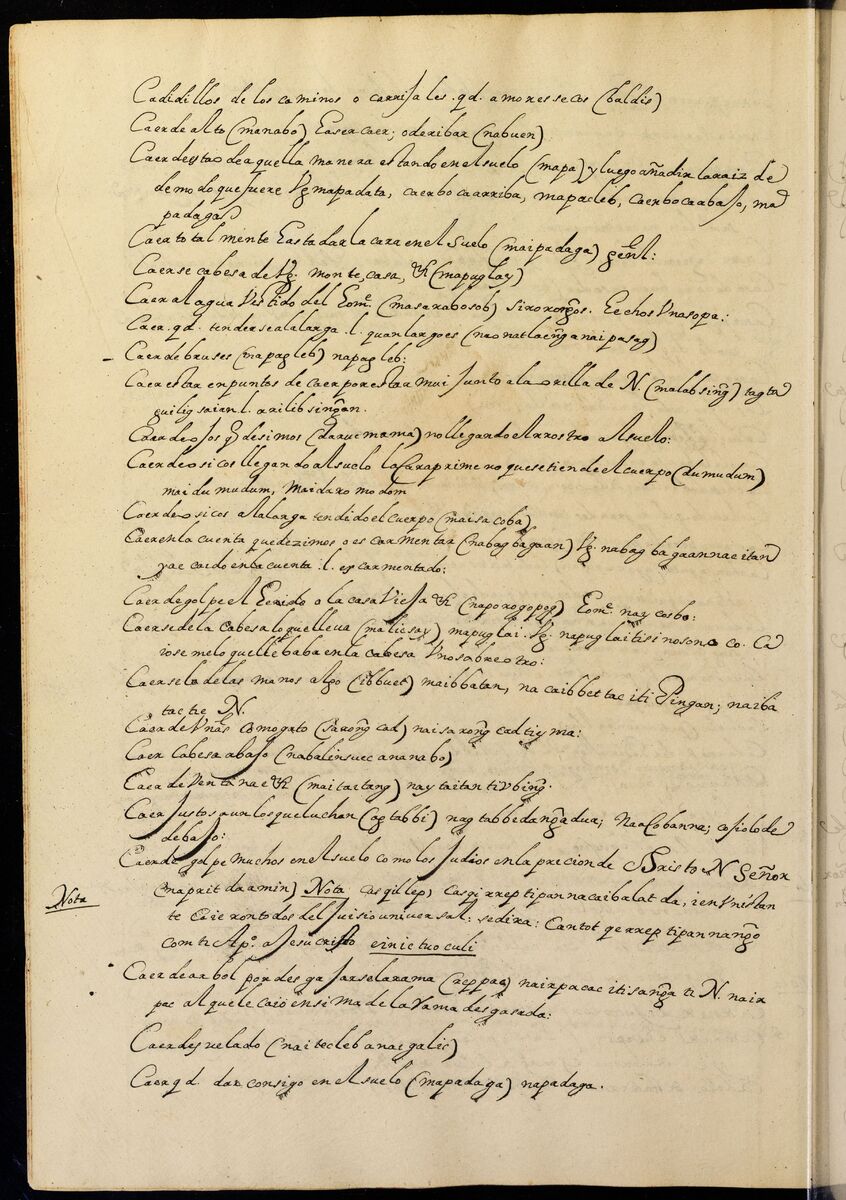 Cadidillos de los caminos o carrisales .qd. amores secos (baldis)
Caer de alto (menabo) Easer caer; o deribar (nabuen)
Caer de sta o de aquella manera estando en el suelo (mapa) y luego añadir la raiz de
de modo que fuere Vg mapadata, caer boca arriba, mapacleb, caer boca abaso, ma
padaga
Caer totalmente Easta dar la cara en el suelo (maipadaga)
Caerse cabesa de Vg. monte, casa, &c (mapuglay)
Caer al agua Vestido del Eom.e (masarabosob) Eechos Vna sopa:
Caer .qd. tenderse a la larga .l. quan largo es (nao natlaeng a naipasag)
Caer de bruses (napagleb) napagleb:
Caer estar en puntos de caer por estar mui Junto a la orilla de N. (malabsing) tagta
.l. arilibsingan.
Caer de o Jos q desimos (daruemama) no llegando el rrostro al suelo:
Caer de osicos llegando al suelo la Cara primero que se tiende el cuerpo (dumudum)
maidumudum, maidaromodom
Caer de osicos a la larga tendido el cuerpo (maisacoba)
Caer en la cuenta que dezimos o escarmentar (nabagbagaan) Vg. nabagbagaan nac itan
yae caido en la cuenta .l. escarmentado:
Caer de golpe el Eerido o la casa VieJa &c (naporogopog) Eom.e nay casbo:
Caerse de la Cabesa lo que lleua (maliesay) mapuglai. Vg. napuglaiti sinosono co. Ca
iose me lo que llebaba en la cabesa Vno sobre otro:
Caerse lo de las manos algo (ibbuet) maibbatan, nacaibbet tac iti Pingan; naiba
tac tie N.
Caer de Vnas Como gato (sarong cad) naisarong cad ti yma:
Caer Cabesa abaJo (nabalinsuec a nanabo)
Caer de Ventana &c (maitaitang) naytaitan ti Vbing.
Caer Justos aun los que luchan (agtabbi) nagtabbeda nga dua; Naacobanna; cosiolo de
debaJo:
Caer de golpe muchos en el suelo como los Judios en la precion de Christo N Señor
(naprit da amin) Nota casqillep, Casqirrep ti pannacaibalat da, i en Vn istan
Nota
te Caieron todos del Juisio universal: se dira: Cantot qerrep ti pannango
com ti Ap.o a Jesucristo e in ictu oculi
Caer de arbol por desgaJarse la rama (reppac) nairpac ac iti sanga ti N. nair
pac al que le caio ensima de la rama desgasada:
Caer desuelado (naitecleb a naigalis)
Caer qd. dar consigo en el suelo (mapadaga) napadaga.